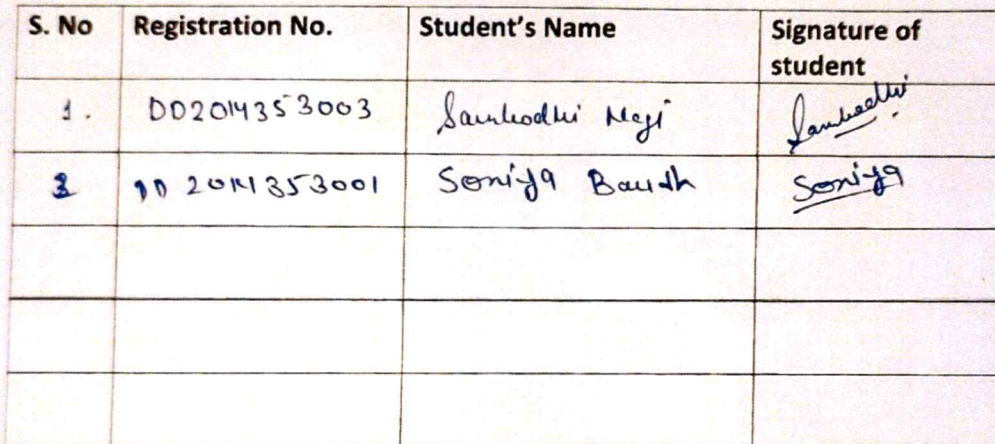 S. No Registration No. Student's Name Signature of student
1. DD2014353003 Sambodhi Negi Sambodhi
2 DD 2014353001 Soniya Soniya